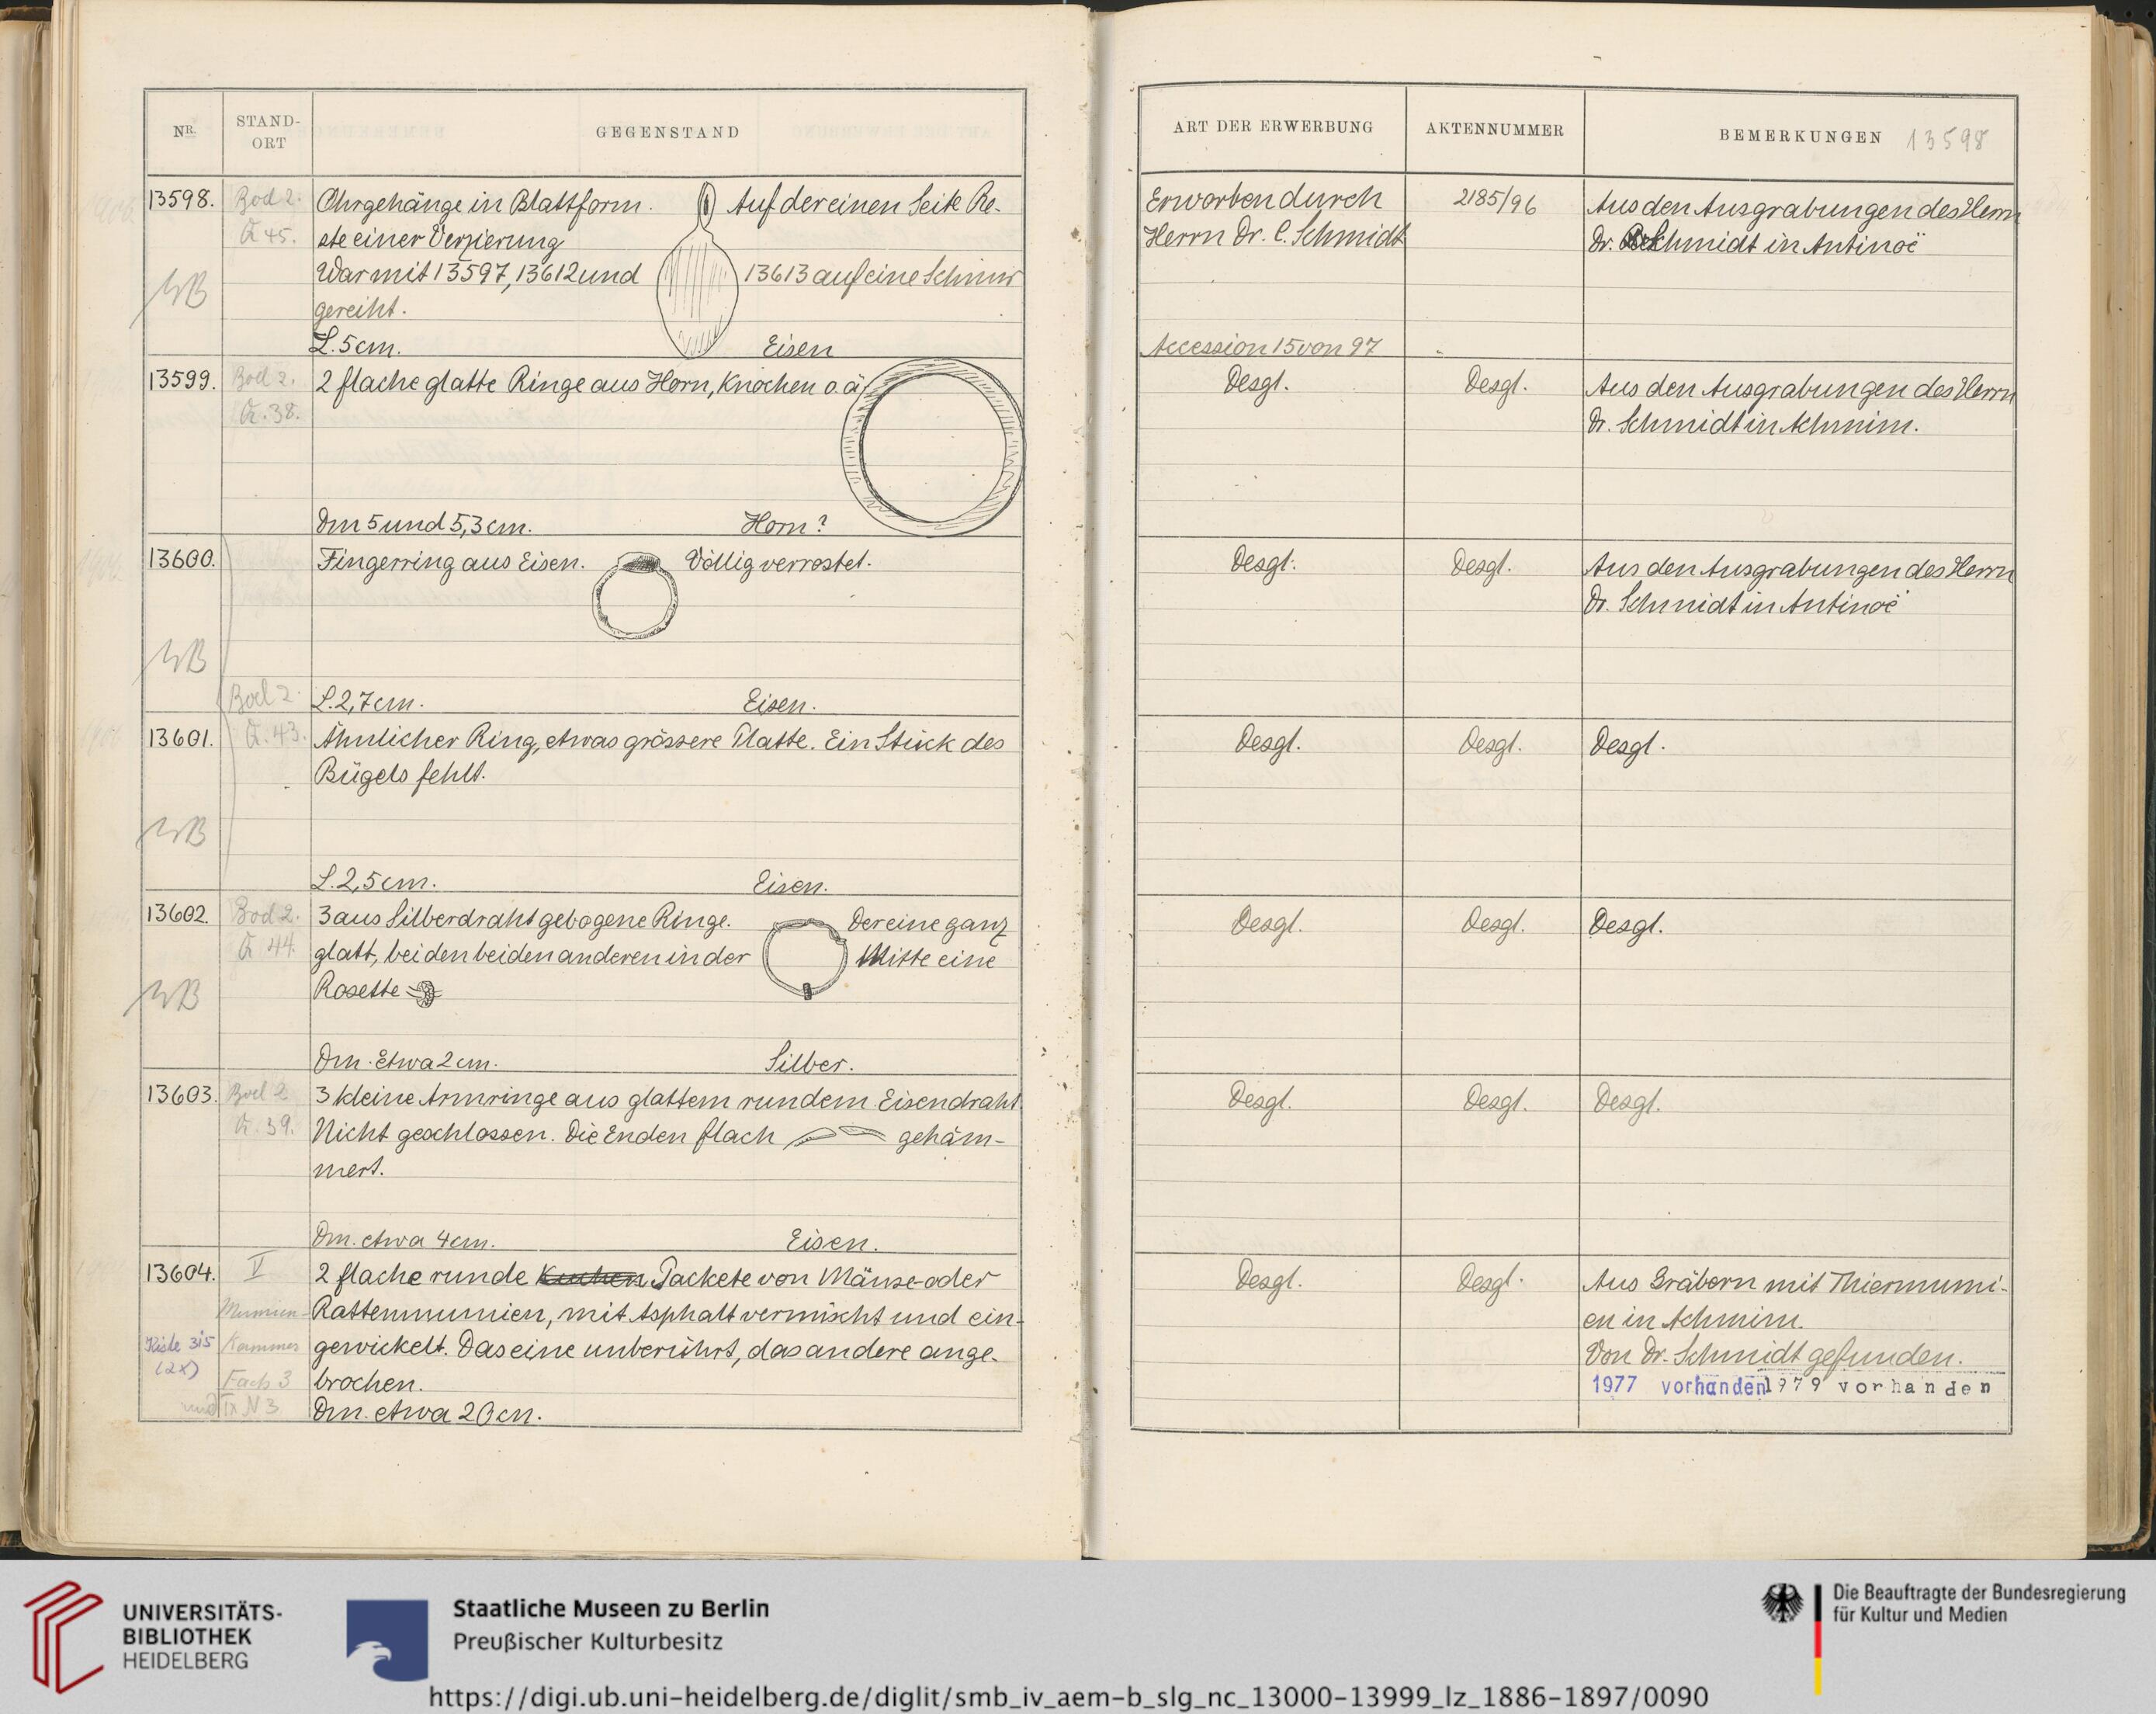 NR.
STAND-
ORT
GEGENSTAND
13598.
Bod 2.
Q 45.
Ohrgehänge in Blattform. Auf der einen Seite Re-
ste einer Verzierung
War mit 13597, 13612 und 13613 auf eine Schnur
gereiht.
L. 5 cm. Eisen
13599.
Bod 2.
Q. 38.
2 flache glatte Ringe aus Horn, Knochen o. ä.
Dm 5 und 5,3 cm. Horn?
13600.
Fingerring aus Eisen. Völlig verrostet.
Bod 2.
L. 2,7 cm. Eisen.
13601.
Q. 43.
Ähnlicher Ring, etwas grössere Platte. Ein Stück des
Bügels fehlt.
L. 2,5 cm. Eisen.
13602.
Bod 2.
Q 44.
3 aus Silberdraht gebogene Ringe. Der eine ganz
glatt, bei den beiden anderen in der Mitte eine
Rosette
Dm. Etwa 2 cm. Silber.
13603.
Bod 2
Q. 39.
3 kleine Armringe aus glattem rundem Eisendraht
Nicht geschlossen. Die Enden flach gehäm-
mert.
Dm. etwa 4 cm. Eisen.
13604.
V
Mumien-
Kammer
Fach 3
und IX N 3
Kiste 315
(2x)
2 flache runde Kuchen Packete von Mäuse- oder
Rattenmumien, mit Asphalt vermischt und ein-
gewickelt. Das eine unberührt, das andere ange-
brochen.
Dm. etwa 20 cm.
ART DER ERWERBUNG
AKTENNUMMER
BEMERKUNGEN 13598
Erworben durch
Herrn Dr. C. Schmidt
2185/96
Aus den Ausgrabungen des Herrn
Dr. Schmidt in Antinoë
Accession 15 von 97
Desgl.
Desgl.
Aus den Ausgrabungen des Herrn
Dr. Schmidt in Achmim.
Desgl.
Desgl.
Aus den Ausgrabungen des Herrn
Dr. Schmidt in Antinoë
Desgl.
Desgl.
Desgl.
Desgl.
Desgl.
Desgl.
Desgl.
Desgl.
Desgl.
Desgl.
Desgl.
Aus Gräbern mit Thiermumi-
en in Achmim.
Von Dr. Schmidt gefunden.
1977 vorhanden 1979 vorhanden
UNIVERSITÄTS-
BIBLIOTHEK
HEIDELBERG
Staatliche Museen zu Berlin
Preußischer Kulturbesitz
Die Beauftragte der Bundesregierung
für Kultur und Medien
https://digi.ub.uni-heidelberg.de/diglit/smb_iv_aem-b_slg_nc_13000-13999_lz_1886-1897/0090